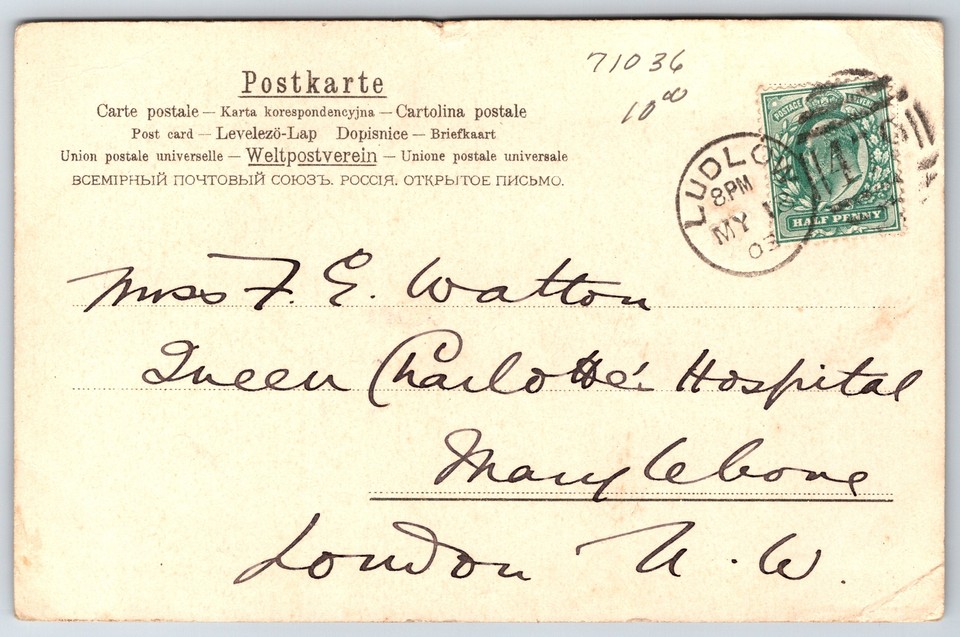 Postkarte
Carte postale — Karta korespondencyjna — Cartolina postale
Post card — Levelezö-Lap Dopisnice — Briefkaart
Union postale universelle — Weltpostverein — Unione postale universale
ВСЕМІРНЫЙ ПОЧТОВЫЙ СОЮЗЪ. РОССІЯ. ОТКРЫТОЕ ПИСЬМО.
71036
10⁰⁰
POSTAGE
HALF PENNY
LUDLO
8PM
MY 1
03
Miss F. E. Watton
Queen Charlotte's Hospital
Marylebone
London N.W.